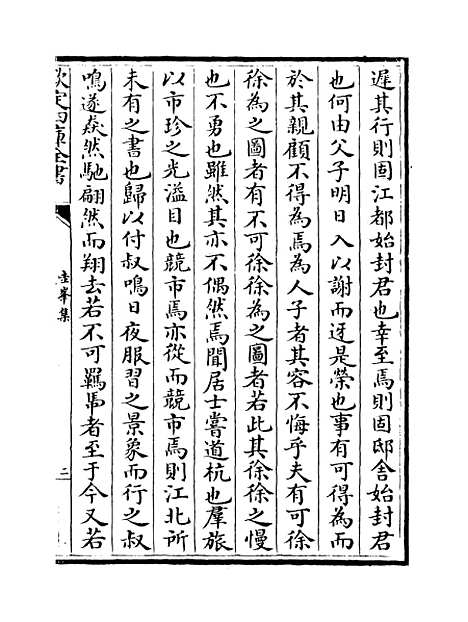 遲其行則固江都始封君也幸至焉則固邸舍始封君
也何由父子明日入以謝而迓是榮也事有可得為而
於其親顧不得為焉為人子者其容不悔乎夫有可徐
徐為之圖者有不可徐徐為之圖者若此其徐徐之慢
也不勇也雖然其亦不偶然焉聞居士嘗道杭也羣旅
以市珍之光溢目也競市焉亦從而競市焉則江北所
未有之書也歸以付叔鳴日夜服習之景象而行之叔
鳴遂猋然馳翩然而翔去若不可羈馬者至于今又若
欽定四庫全書
圭峯集
二